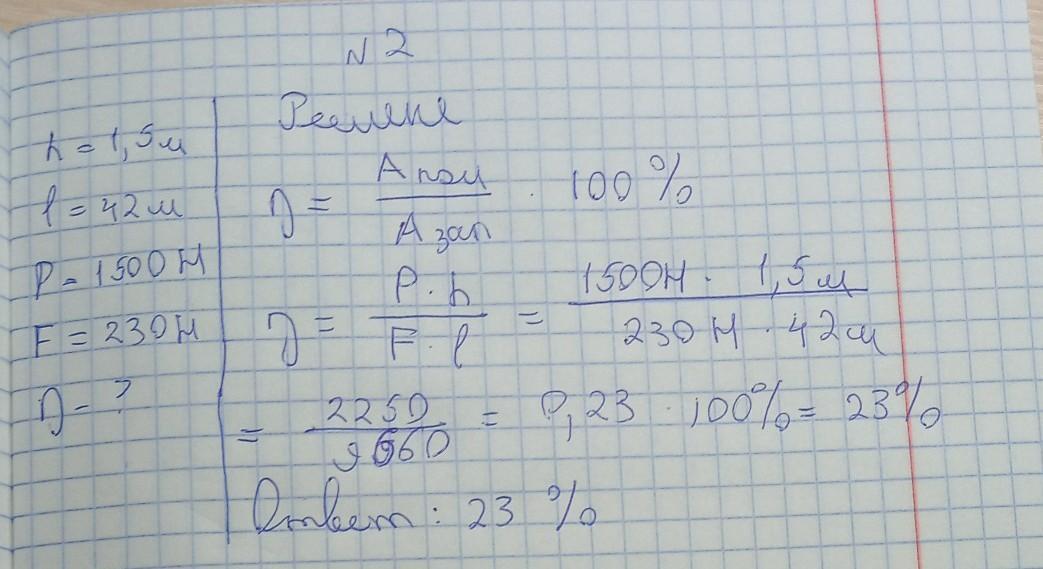 N 2
h = 1,5 м
l = 42 м
P = 1500 Н
F = 230 Н
η - ?
Решение
η = Апол / Азат · 100 %
η = P · h / F · l = 1500Н · 1,5 м / 230 Н · 42 м
= 2250 / 9660 = 0,23 · 100% = 23%
Ответ: 23 %